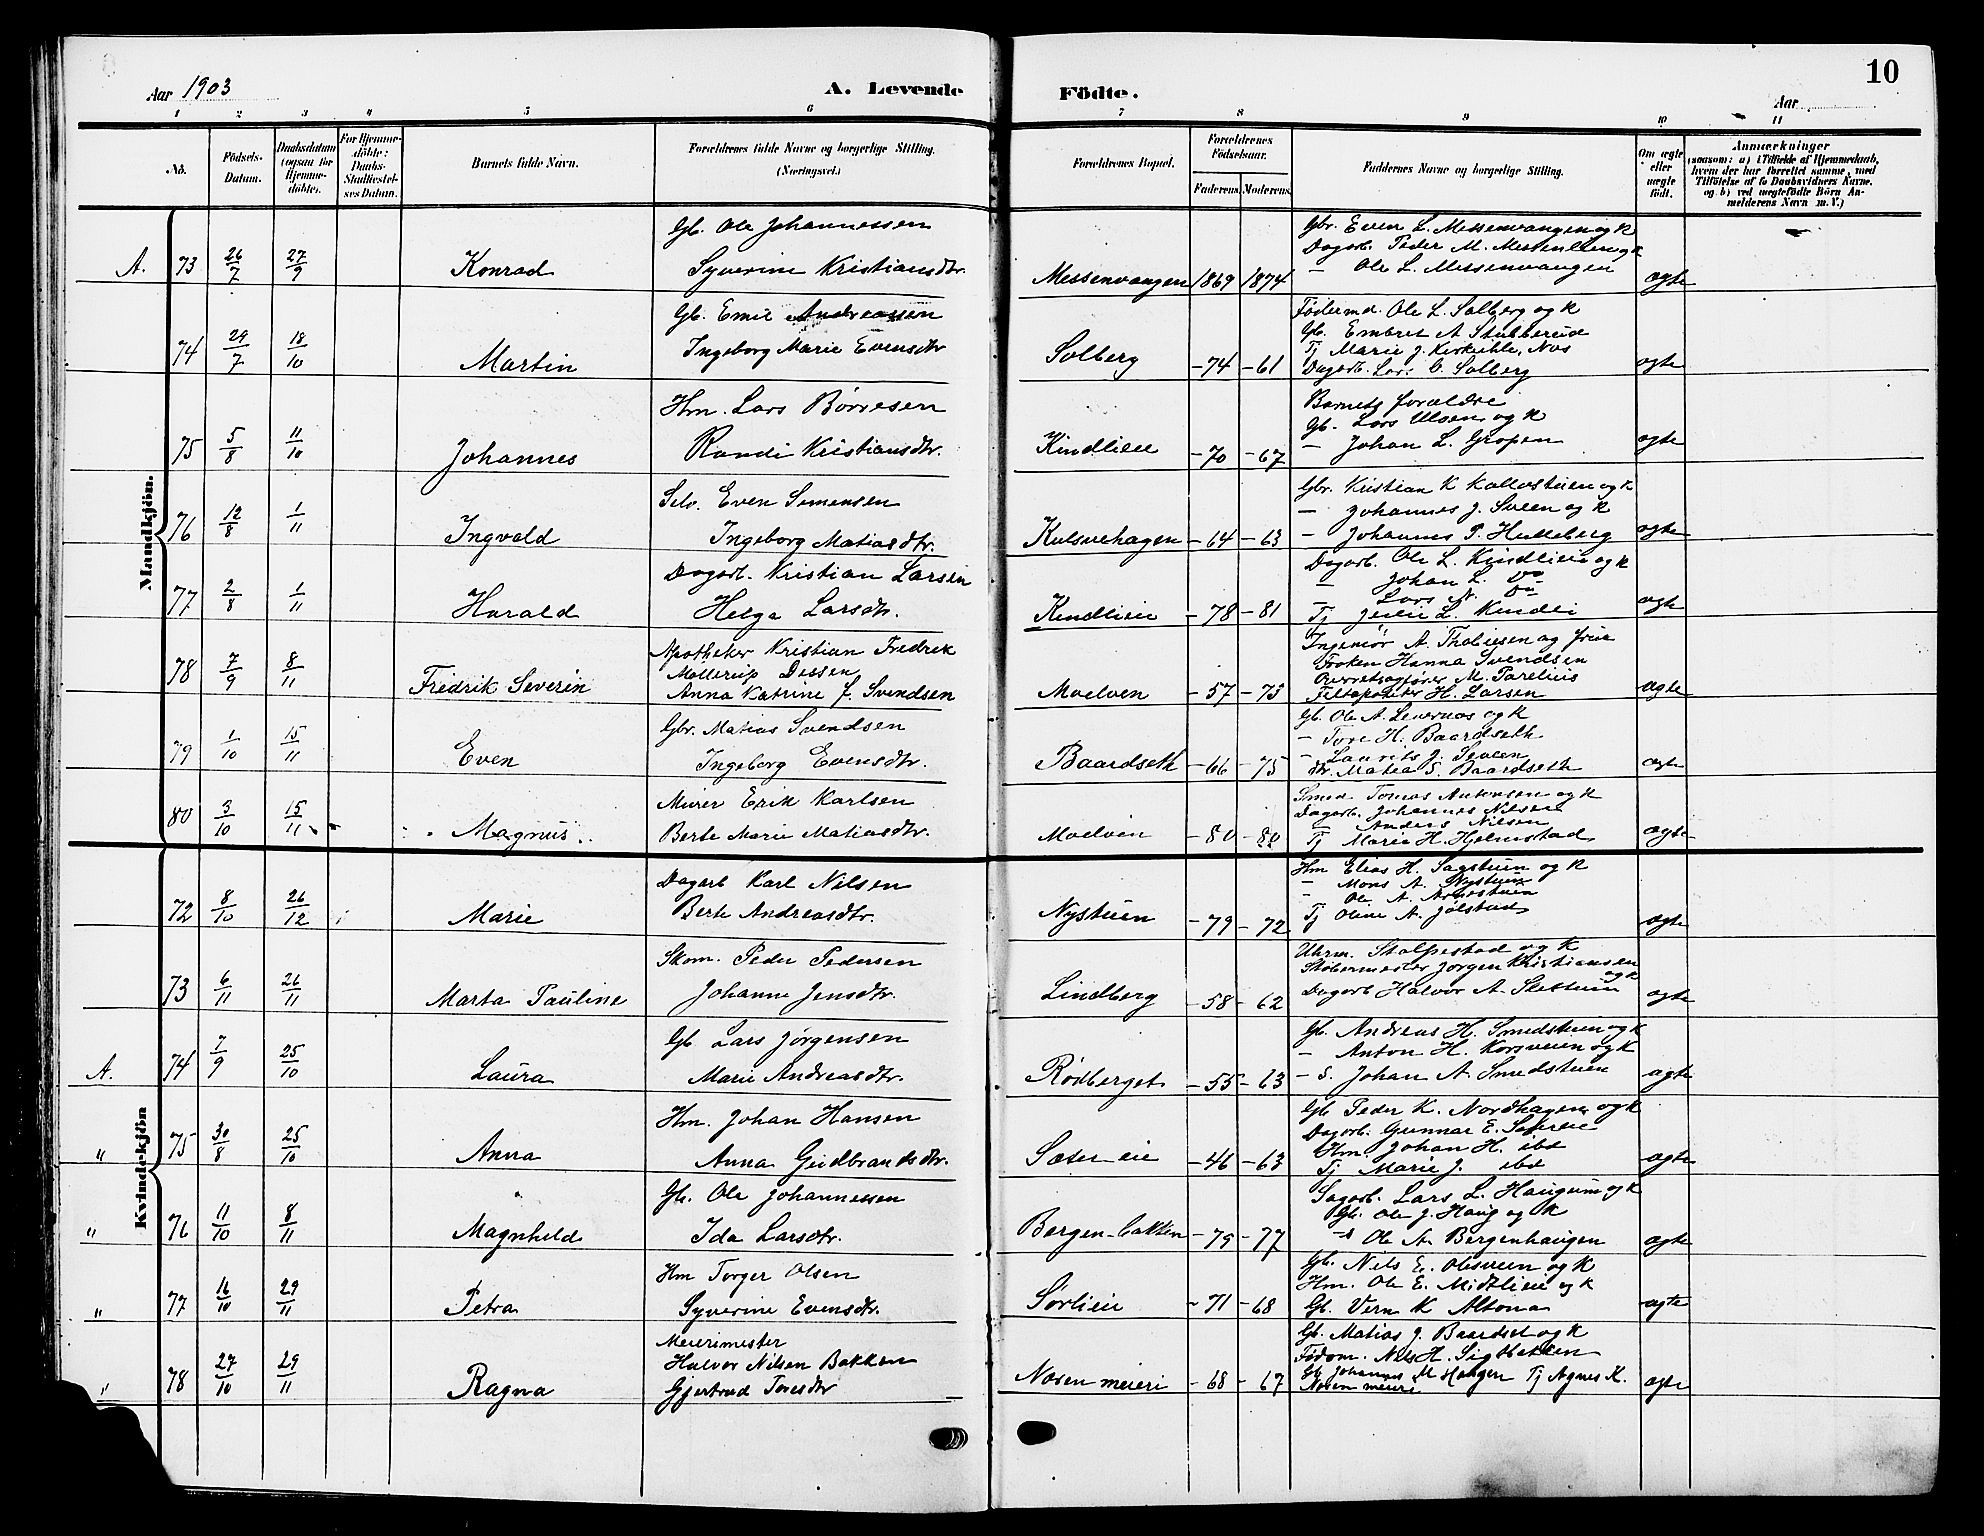 10
Aar 1903
A. Levende Födte.
Aar
1 2 3 4 5 6 7 8 9 10 11
No.
Födsels-
Datum.
Daabsdatum
(ogsaa for
Hjemme-
döbte).
For Hjemme-
döbte:
Daabs-
Stadfæstel-
ses Datum.
Barnets fulde Navn.
Forældrenes fulde Navne og borgerlige Stilling.
(Næringsvei.)
Forældrenes Bopæl.
Forældrenes
Födselsaar.
Faderens. Moderens.
Faddernes Navne og borgerlige Stilling.
Om ægte
eller
uægte
födt.
Anmærkninger
(saasom: a) i Tilfælde af Hjemmedaab,
hvem der har forrettet samme, med
Tilföielse af to Daabsvidners Navne,
og b) ved uægtefödte Börn An-
melderens Navn m. V.)
Mandkjön.
A. 73 26/7 27/9 Konrad
Gb. Ole Johannessen
Syverine Kristiansdtr.
Messenvangen 1869 1874
Gbr. Even L. Messenvangen og K
Dagarb. Peder M. Messenlien og K
– Ole L. Messenvangen
ægte
74 29/7 18/10 Martin
Gb. Emil Andreassen
Ingeborg Marie Evensdtr
Solberg –74 –61
Födermd. Ole L. Solberg og K
Gb. Embret A Stubberud
Tj Marie J. Kirkehle, Næs
Dagarb. Lars O. Solberg
ægte
75 5/8 11/10 Johannes
Hm. Lars Börresen
Randi Kristiansdtr.
Kindlien –70 –67
Barnets forældre
Gb. Lars Ulven og K
– Johan L. Gropen
ægte
76 12/8 1/11 Ingvald
Selv. Even Simensen
Ingeborg Matiasdtr.
Kulsvehagen –64 –63
Gbr. Kristian K Kallostuen og K
– Johannes J. Sveen og K
– Johannes P. Hulleberg
ægte
77 2/8 1/11 Harald
Dagarb. Kristian Larsen
Helga Larsdtr.
Kindlien –78 –81
Dagarb. Ole L. Kindlien og K
– Johan L. Do
– Lars N. Do
Tj L. Kindli
ægte
78 7/9 8/11 Fredrik Severin
Apotheker Kristian Fredrik
Möllerup Dessen
Anna Katrine f. Svendsen
Moelven –57 –73
Ingeniör A. Thaliesen og frue
Fröken Hanna Svendsen
Overretssagförer M. Parelius
Feltapoteker H. Larsen
ægte
79 1/10 15/11 Even
Gbr. Matias Svendsen
Ingeborg Evensdtr.
Baardseth –66 –75
Gb. Ole A. Levernæs og K
– Tore H. Baardseth
– Laurits J. Sveen
dr. Matea S. Baardseth
ægte
80 3/10 15/11 Magnus
Murer Erik Karlsen
Berte Marie Matiasdtr.
Moelven –80 –80
Smed. Tomas Antonsen og K
Dagarb. Johannes Nilsen
– Anders Nilsen
Tj Maria H. Hjelmstad
ægte
Kvindekjön
72 8/10 26/12 Marie
Dagarb Karl Nilsen
Berte Andreasdtr.
Nystuen –79 –72
Hm Elias H. Sagstuen og K
– Mons A. Nystuen
– Ole A. Arnestuen
Tj Oline A. Jölstad
ægte
73 6/11 26/11 Marta Pauline
Skom. Peder Pedersen
Johanne Jensdtr.
Lindberg –58 –62
Uhrm. Stolpestad og K
Stöbermester Jörgen Kristiansen
og K
Dagarb Halvor A. Slettuen
ægte
A. 74 7/9 25/10 Laura
Gb Lars Jörgensen
Marie Andreasdtr.
Rödberget –55 –63
Gb. Andreas H. Smedstuen og K
– Anton H. Korsveien og K
– s. Johan A Smedstuen
ægte
" 75 30/8 25/10 Anna
Hm. Johan Hansen
Anna Gudbrandsdtr.
Sæter eie –46 –63
Gb Peder K. Nordhagen og K
Dagarb. Gunnar E. Sætreie
Hm. Johan H. ibd
Tj Marie J. ibd
ægte
" 76 11/10 8/11 Magnhild
Gb. Ole Johannessen
Ida Larsdtr.
Bergen-bakken –79 –77
Sagarb. Lars L. Haugum og K
Gb. Ole J. Haug og K
–s Ole A. Bergenhaugen
ægte
" 77 16/10 29/11 Petra
Hm Torger Olsen
Syverine Evensdtr.
Sörlien –71 –68
Gb. Nils E. Olesveen og K
Hm. Ole E. Midtlien og K
Gb. Vern K Altona
ægte
" 78 27/10 29/11 Ragna
Meierimester
Halvor Nilsen Bakken
Gjertrud Toresdtr
Næsen meieri –68 –67
Gb. Matias J. Baardset og K
Födom. Nils H. Siglbekken
Gb Johannes M Haugen Tj Agnes K.
Næsen meieri
ægte